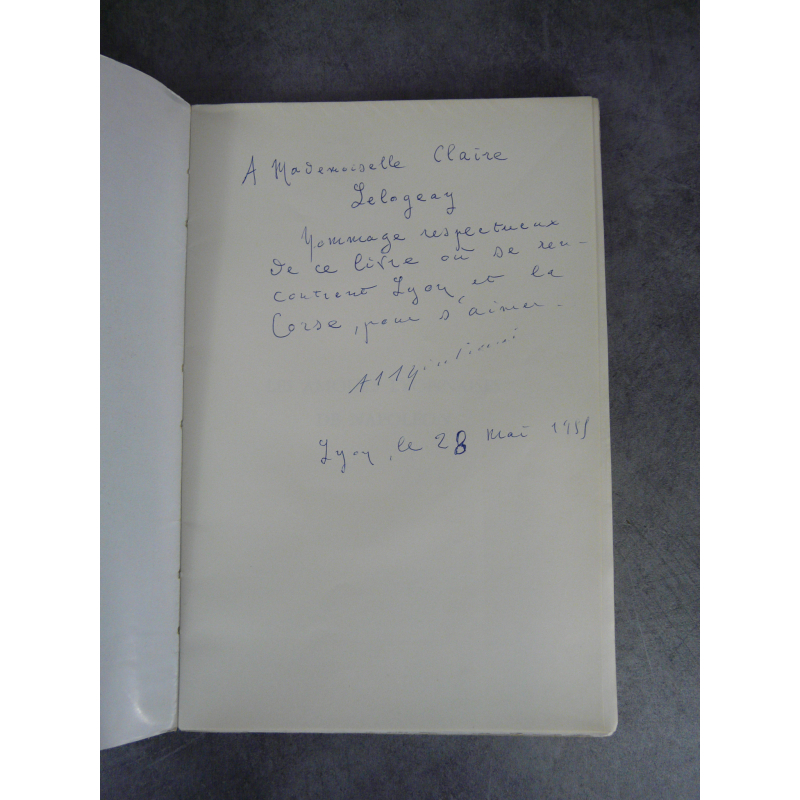 A Mademoiselle Claire
Lelogeay
Hommage respectueux
de ce livre où se ren-
contrent Lyon et la
Corse, pour s'aimer.
Lyon, le 28 mai